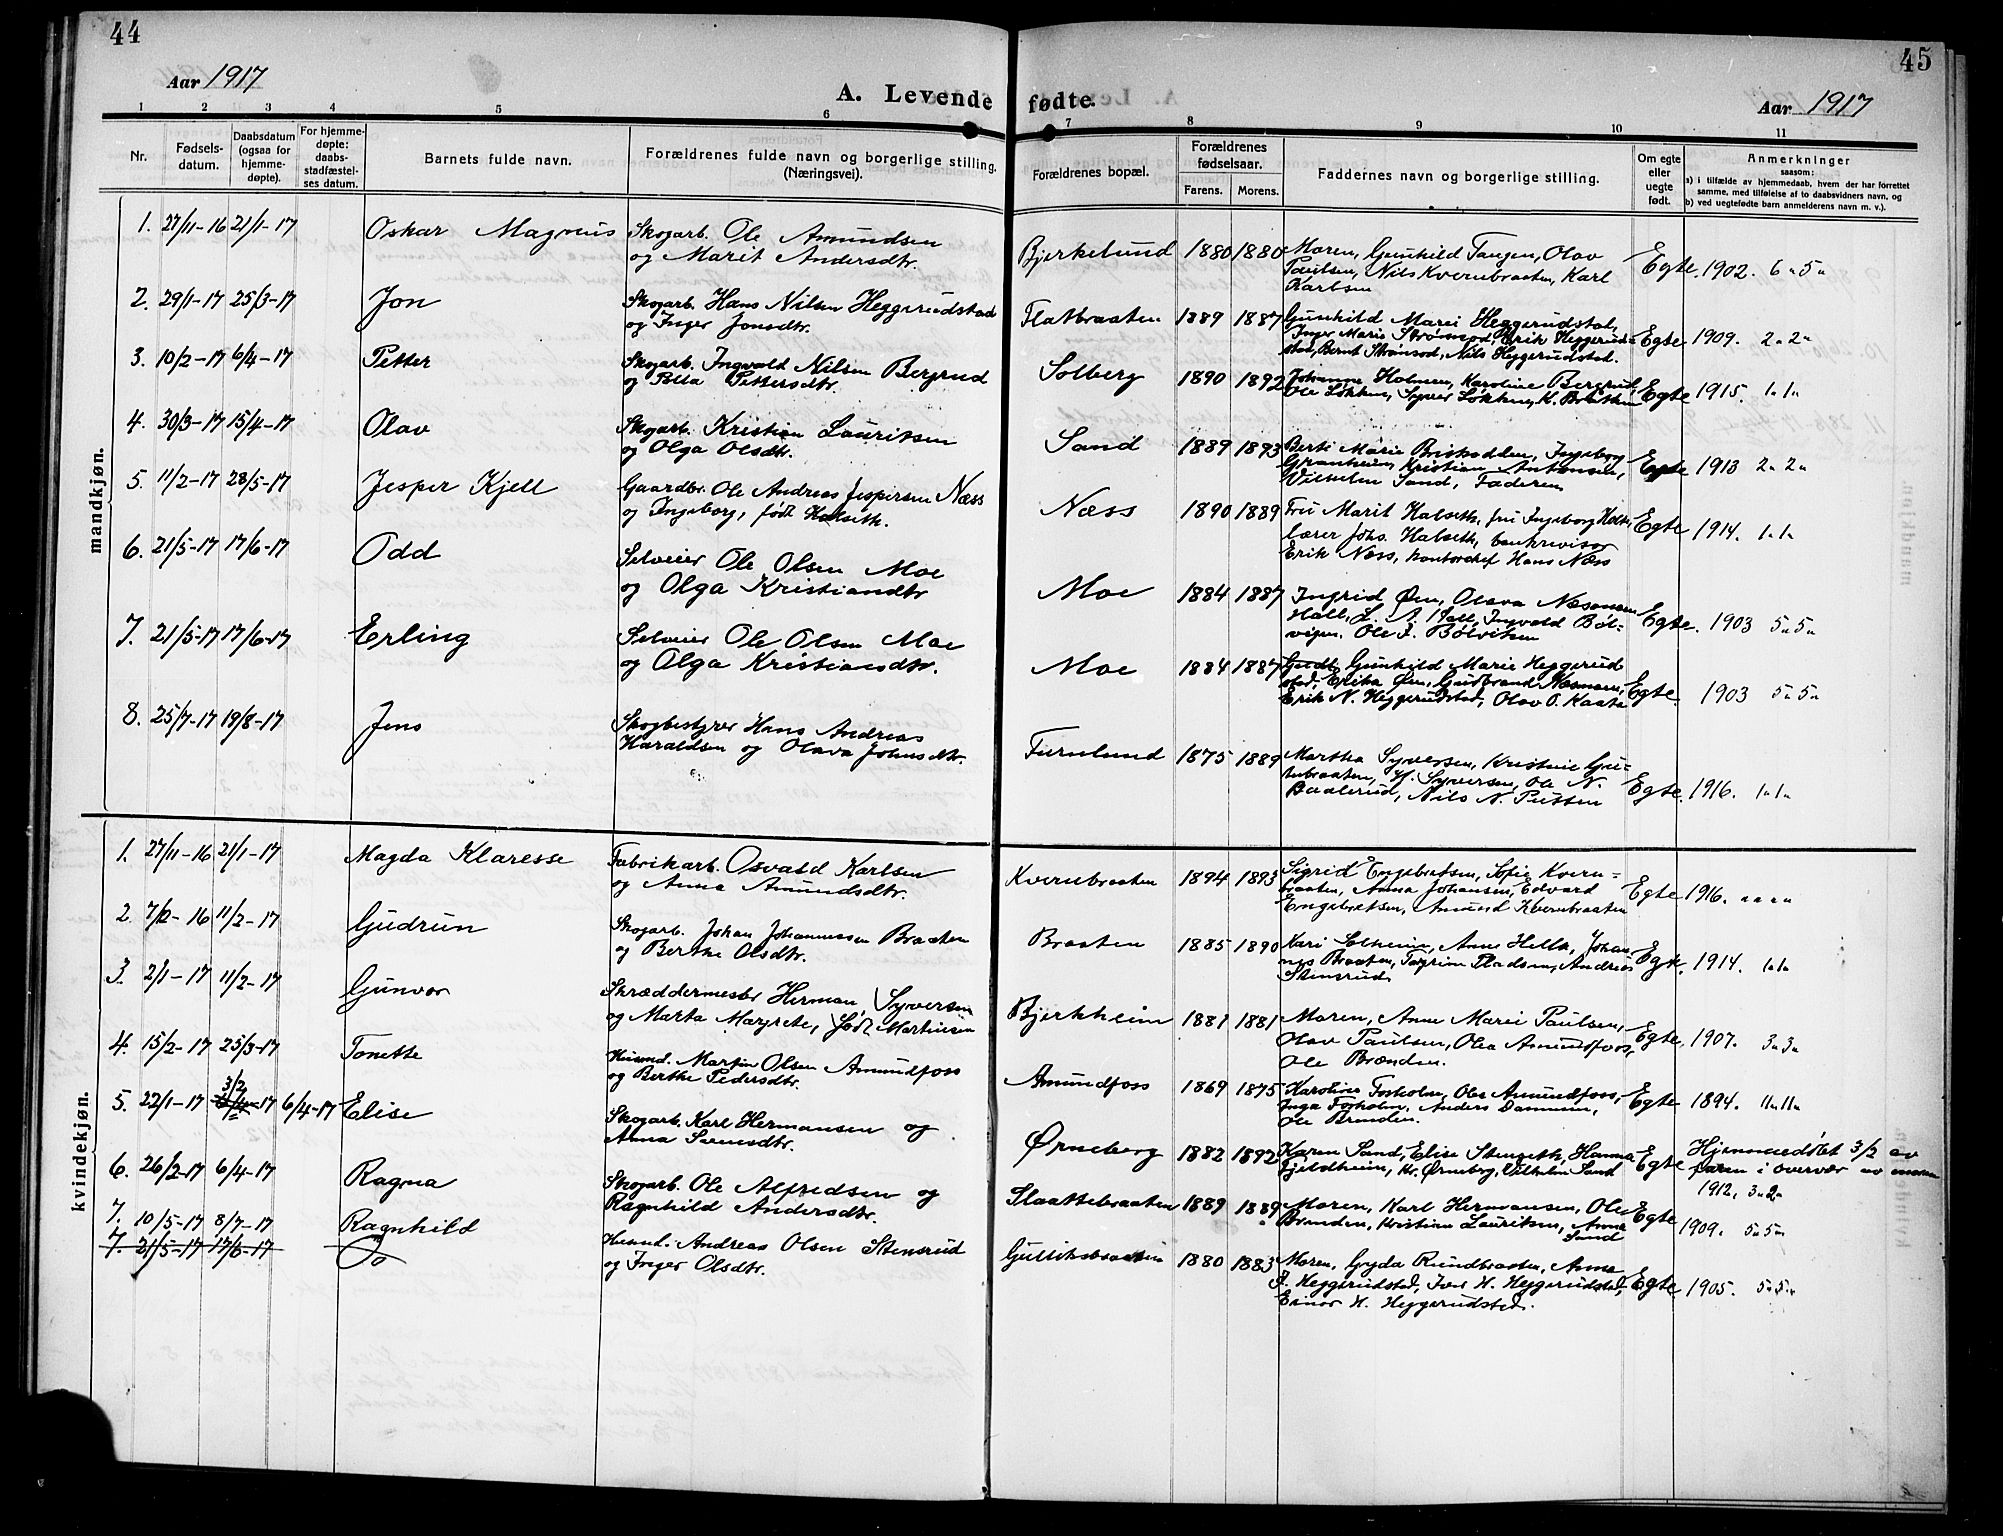 44
Aar 1917
A. Levende
1 2 3 4 5 6
Nr.
Fødsels-
datum.
Daabsdatum
(ogsaa for
hjemme-
døpte).
For hjemme-
døpte:
daabs-
stadfæstel-
ses datum.
Barnets fulde navn.
Forældrenes fulde navn og borgerlige stilling.
(Næringsvei).
mandkjøn.
1. 27/11-16 21/1-17 Oskar Magnus Skogarb. Ole Amundsen
og Marit Andersdtr.
2. 29/1-17 25/3-17 Jon Skogarb. Hans Nilsen Heggerudstad
og Inger Jonsdtr.
3. 10/2-17 6/4-17 Petter Skogarb. Ingvald Nilsen Bergrud
og Petra Pettersdtr.
4. 30/3-17 15/4-17 Olav Skogarb. Kristian Lauritsen
og Olga Olsdtr.
5. 11/2-17 28/5-17 Jesper Kjell Gaardbr. Ole Andreas Jespersen Næss
og Ingeborg, født Halseth.
6. 21/5-17 17/6-17 Odd Selveier Ole Olsen Moe
og Olga Kristiansdtr
7. 21/5-17 17/6-17 Erling Selveier Ole Olsen Moe
og Olga Kristiansdtr.
8. 25/7-17 19/8-17 Jens Skogbestyrer Hans Andreas
Haraldsen og Olava Johnsdtr.
kvindekjøn.
1. 27/11-16 21/1-17 Magda Klaresse Fabrikarb. Osvald Karlsen
og Anna Amundsdtr.
2. 7/12-16 11/2-17 Gudrun Skogarb. Johan Johannessen Braaten
og Berthe Olsdtr.
3. 2/1-17 11/2-17 Gunvor Skræddermester Herman Syversen
og Marta Margrete, født Martinsen
4. 15/2-17 25/3-17 Tonette Husmd. Martin Olsen Amundfoss
og Berthe Pedersdtr.
5. 22/1-17 3/2 6/4-17 6/4-17 Elise Skogarb. Karl Hermansen og
Anna Svensdtr.
6. 26/2-17 6/4-17 Ragna Skogarb. Ole Alfredsen og
Ragnhild Andersdtr.
7. 10/5-17 8/7-17 Ragnhild Husmd. Andreas Olsen Stensrud
og Inger Olsdtr.
7. 21/5-17 17/6-17
45
fødte.
Aar 1917
7 8 9 10 11
Forældrenes bopæl.
Forældrenes
fødselsaar.
Farens. Morens.
Faddernes navn og borgerlige stilling.
Om egte
eller
uegte
født.
Anmerkninger
saasom:
a) i tilfælde av hjemmedaab, hvem der har forrettet
samme, med tilføielse af to daabsvidners navn, og
b) ved uegtefødte barn anmelderens navn m. v.).
Bjerkelund 1880 1880 Moren, Gunhild Tangen, Olav
Paulsen, Nils Kvernbraaten, Karl
Karlsen Egte. 1902. 6 " 5 "
Flatbraaten 1889 1887 Gunhild Marie Heggerudstad,
Inger Marie Strømsod, Erik Heggerud-
stad, Bernt Strømsod, Nils Heggerudstad. Egte 1909. 2 " 2 "
Solberg 1890 1892 Johanne Holmen, Karoline Bergrud,
Ole Løkken, Syver Løkken, K. Braathen Egte 1915. 1 " 1 "
Sand 1889 1893 Berte Marie Briskodden, Ingeborg
Granheim, Kristian Antonsen,
Vilhelm Sand, Faderen Egte 1913 2 " 2 "
Næss 1890 1889 Fru Marit Halseth, fru Ingeborg
lærer Johs. Halseth, bankrevisor
Erik Næss, kontorchef Hans Næss Egte 1914. 1 " 1 "
Moe 1884 1887 Ingrid Øen, Olava Næsmoen
Hall, L. A. Hall, Ingvald Bøl-
vigen. Ole J. Bølviken Egte. 1903 5 " 5 "
Moe 1884 1887 Gudb. Gunhild Marie Heggerud
stad, Erika Øen, Gudbrand Næsmoen,
Erik N. Heggerudstad, Olav O. Kaata Egte. 1903 5 " 5 "
Furulund 1875 1889 Martha Syversen, Kristine Gu-
tubraaten, H. Syversen, Ole N.
Baalerud, Nils N. Putten Egte. 1916. 1 " 1 "
Kvernbraaten 1894 1893 Sigrid Engebretsen, Sofie Kvern-
braaten, Anna Johansen, Edvard
Engebretsen, Amund Kvernbraaten Egte 1916. " " " "
Braaten 1885 1890 Kari Solheim, Anne Hella, Johan-
nes Braaten, Torgrim Pladsen, Andreas
Stensrud Egte. 1914. 1 " 1 "
Bjerkheim 1881 1881 Moren, Anne Marie Paulsen,
Olav Paulsen, Olea Amundfoss,
Ole Brænden. Egte. 1907. 3 " 3 "
Amundfoss 1869 1875 Karoline Fosholm, Olea Amundfoss,
Inga Fosholm, Anders Dammen,
Ole Brænden. Egte 1894. 11 " 11 "
Ørneberg 1882 1892 Karen Sand, Elise Stenseth, Hanna
Gjeldheim, Kr. Ørneberg, Vilhelm Sand Egte Hjemmedøbt 3/2 av
faren i overvær av moren
1912, 3 " 2 "
Slaattebraaten 1889 1889 Moren, Karl Hermansen, Ole
Brænden, Kristian Lauritsen, Anna
Sand Egte 1909. 5 " 5 "
Gulliksbraaten 1880 1883 Moren, Gyda Rundbraaten, Anne
J. Heggerudstad, Iver H. Heggerudstad,
Einar H. Heggerudstad. Egte 1905. 5 " 5 "